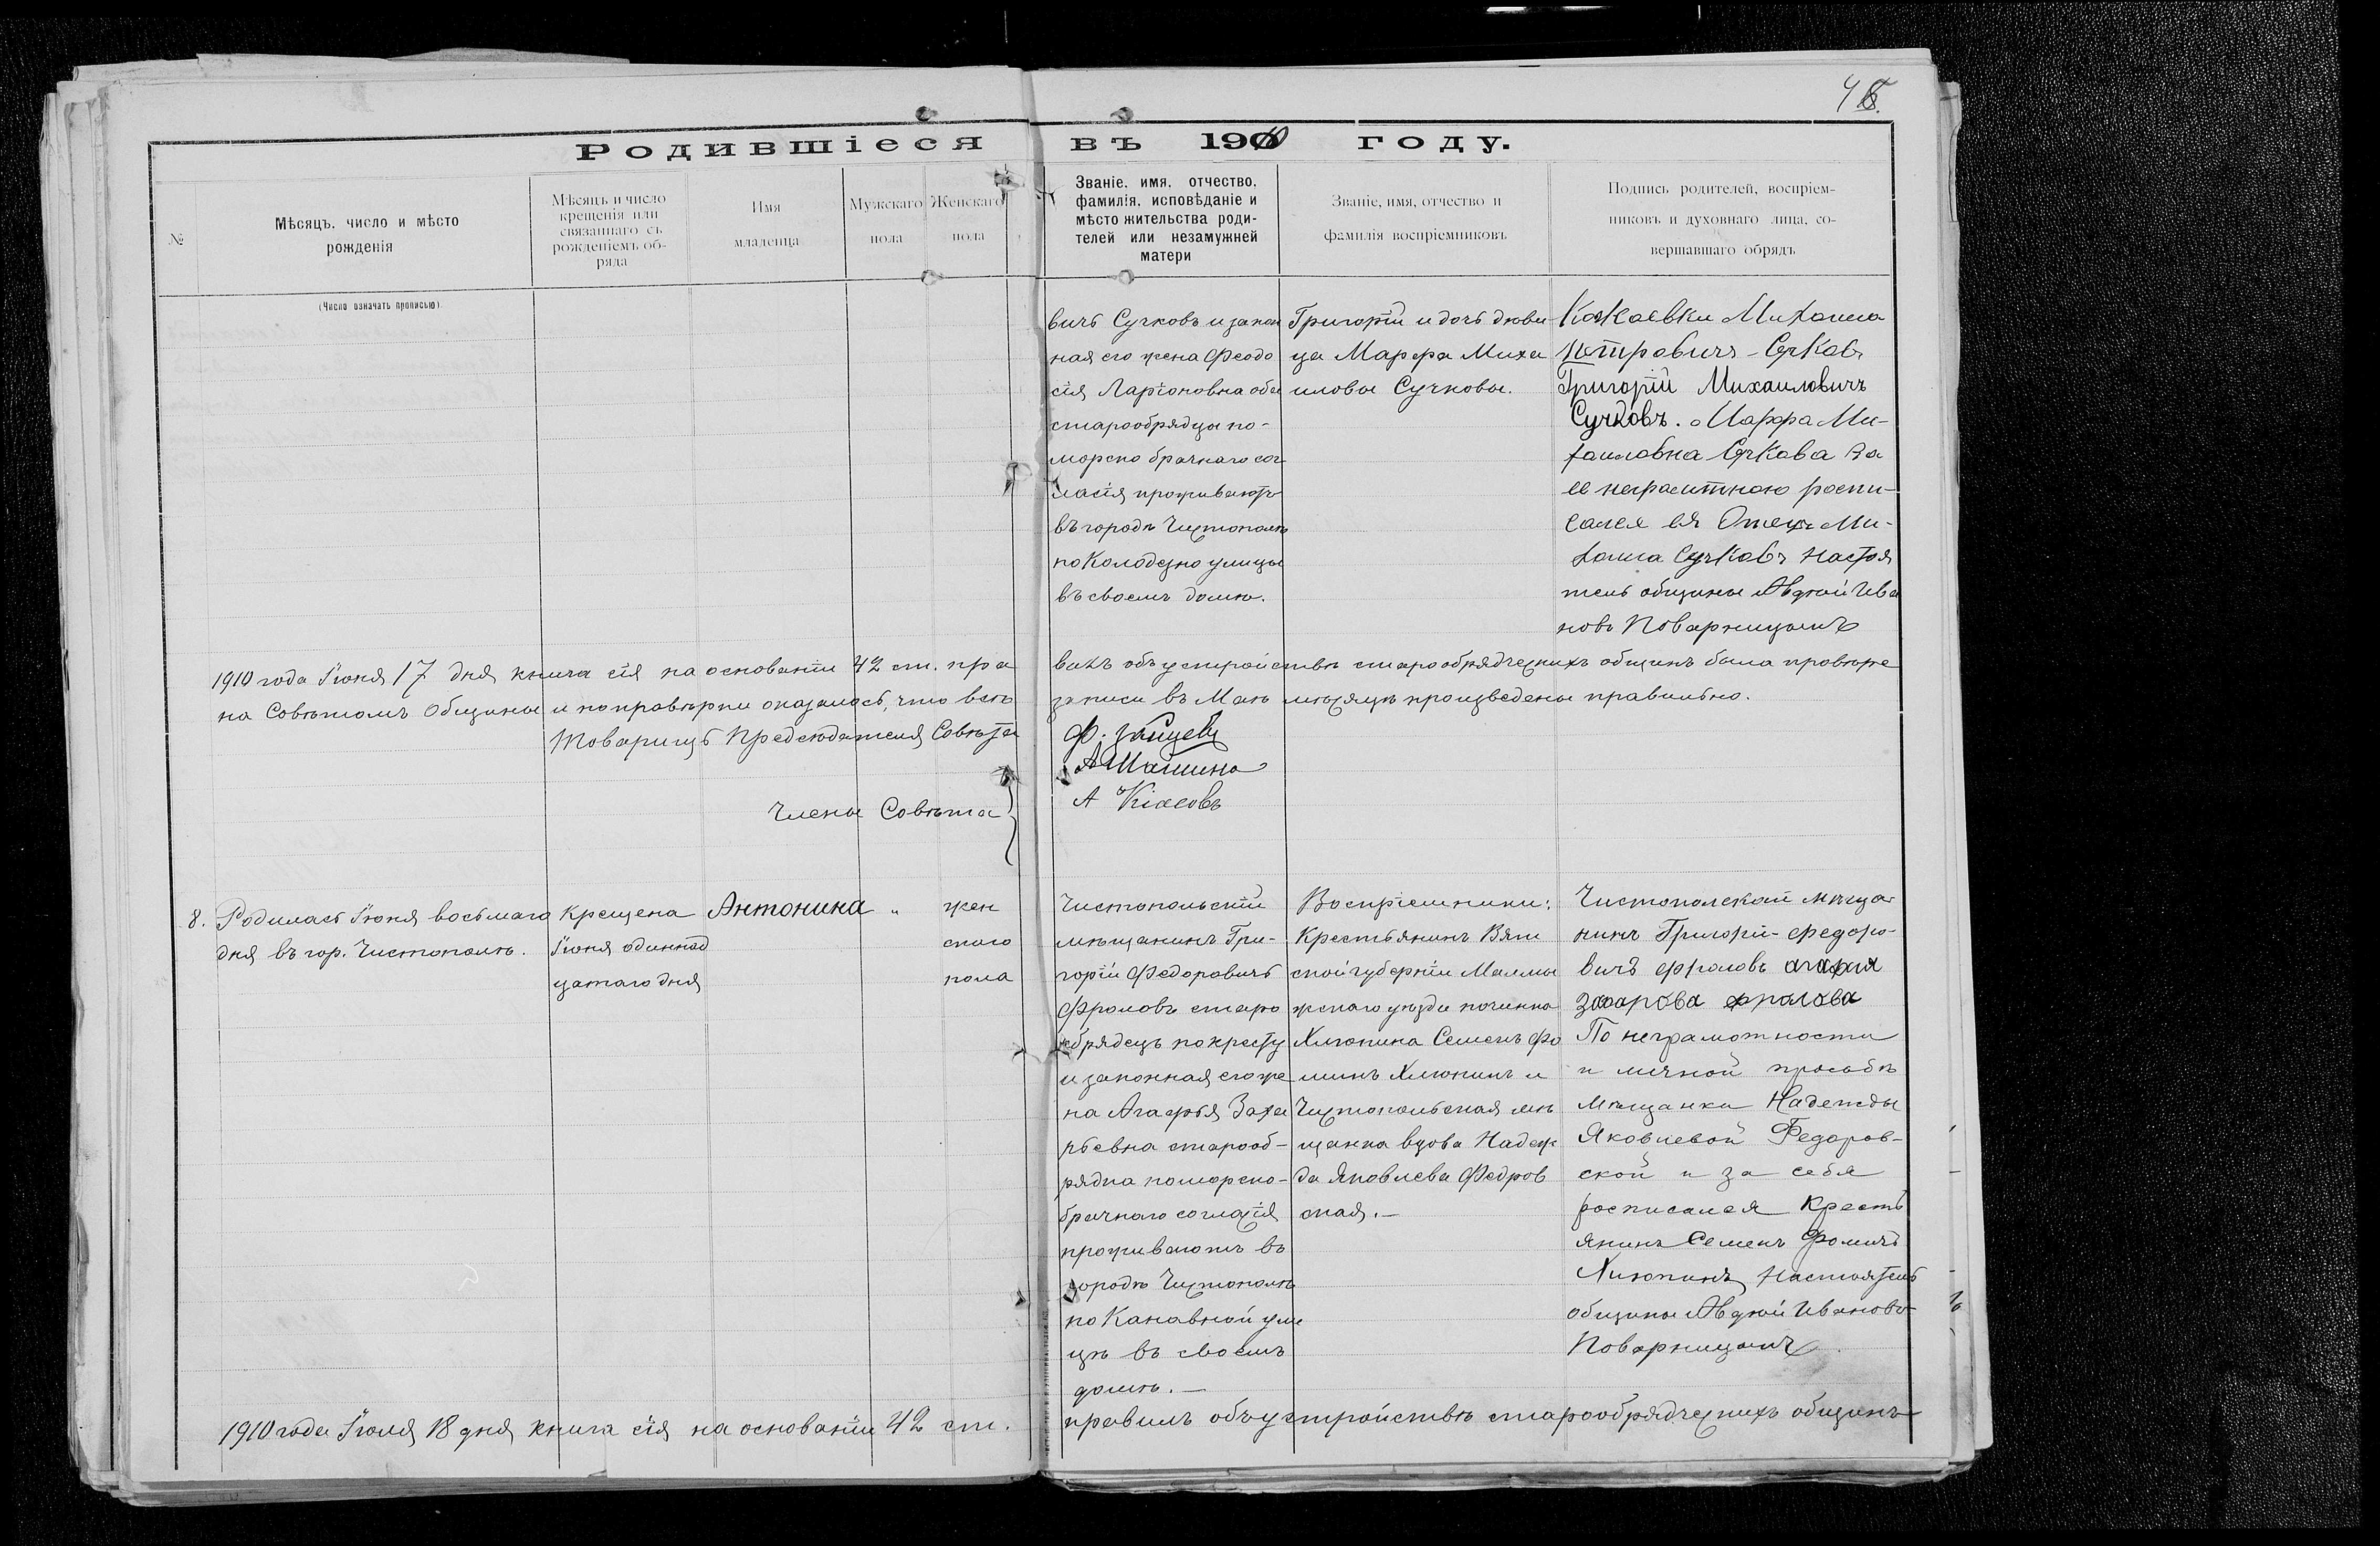 45.
Родившіеся въ 1910 году.
№
Мѣсяцъ, число и мѣсто
рожденія
Мѣсяцъ и число
крещенія или
связаннаго съ
рожденіемъ об-
ряда
Имя
младенца
Мужскаго
пола
Женскаго
пола
Званіе, имя, отчество,
фамилія, исповѣданіе и
мѣсто жительства роди-
телей или незамужней
матери
Званіе, имя, отчество и
фамилія воспріемниковъ
Подпись родителей, воспріем-
никовъ и духовнаго лица, со-
вершавшаго обрядъ
(Число означать прописью).
вичъ Сучковъ и закон
ная его жена Феодо
сія Ларіоновна оба
старообрядцы по-
морско брачнаго сог-
ласія проживаютъ
въ городѣ Чистополѣ
по Колодезно улицы
въ своемъ домѣ.
Григорій и дочь дѣви
ца Марфа Миха
иловы Сучковы.
Михаила
Петровичъ Сучковъ
Григорій Михаиловичъ
Сучковъ. Марфа Ми-
хаиловна Сучкова За
ее неграмтною роспи-
сался ея Отецъ Ми-
хаила Сучковъ Настоя
тель общины Авдѣй Ива
новъ Поварницынъ
1910 года Іюня 17 дня книга сія на основаніи 42 ст. пра
вилъ объ устройствѣ старообрядческихъ общинъ была провѣре
на Совѣтомъ Общины и по провѣрки оказалось, что всѣ
записи въ Маѣ мѣсяцѣ произведены правильно.
Товарищъ Предсѣдателя Совѣта
Члены Совѣта
А Машина
8.
Родилась Іюня восьмаго
дня въ гор. Чистополѣ.
Крещена
Іюня одиннад
цатаго дня
Антонина
"
жен
скаго
пола
Чистопольскій
мѣщанинъ Гри-
горій Федоровичъ
Фроловъ старо
обрядецъ по кресту
и законная его же
на Агафья Заха
рьевна старооб-
рядка поморско-
брачнаго согласія
проживаютъ въ
городѣ Чистополѣ
по Канавной ули
цѣ въ своемъ
домѣ.—
Воспріемники:
Крестьянинъ Вятс
кой губерніи Малмы
жскаго уѣзда починка
Хлюпина Семенъ Фо
минъ Хлюпинъ и
Чистопольская мѣ
щанка вдова Надеж
да Яковлева Федров
ская.—
Чистополской мѣща
нинъ Григорій федоро-
вичъ фроловъ агафия
захарова фралова
По неграмотности
и личной просьбѣ
мѣщанки Надежды
Яковлевой Федоров-
ской и за себя
росписался Кресть
янинъ Семенъ Фомичъ
Хлюпинъ Настоятель
общины Авдѣй Ивановъ
Поварницынъ
1910 года Іюля 18 дня книга сія на основаніи 42 ст.
правилъ объ устройствѣ старообрядческихъ общинъ